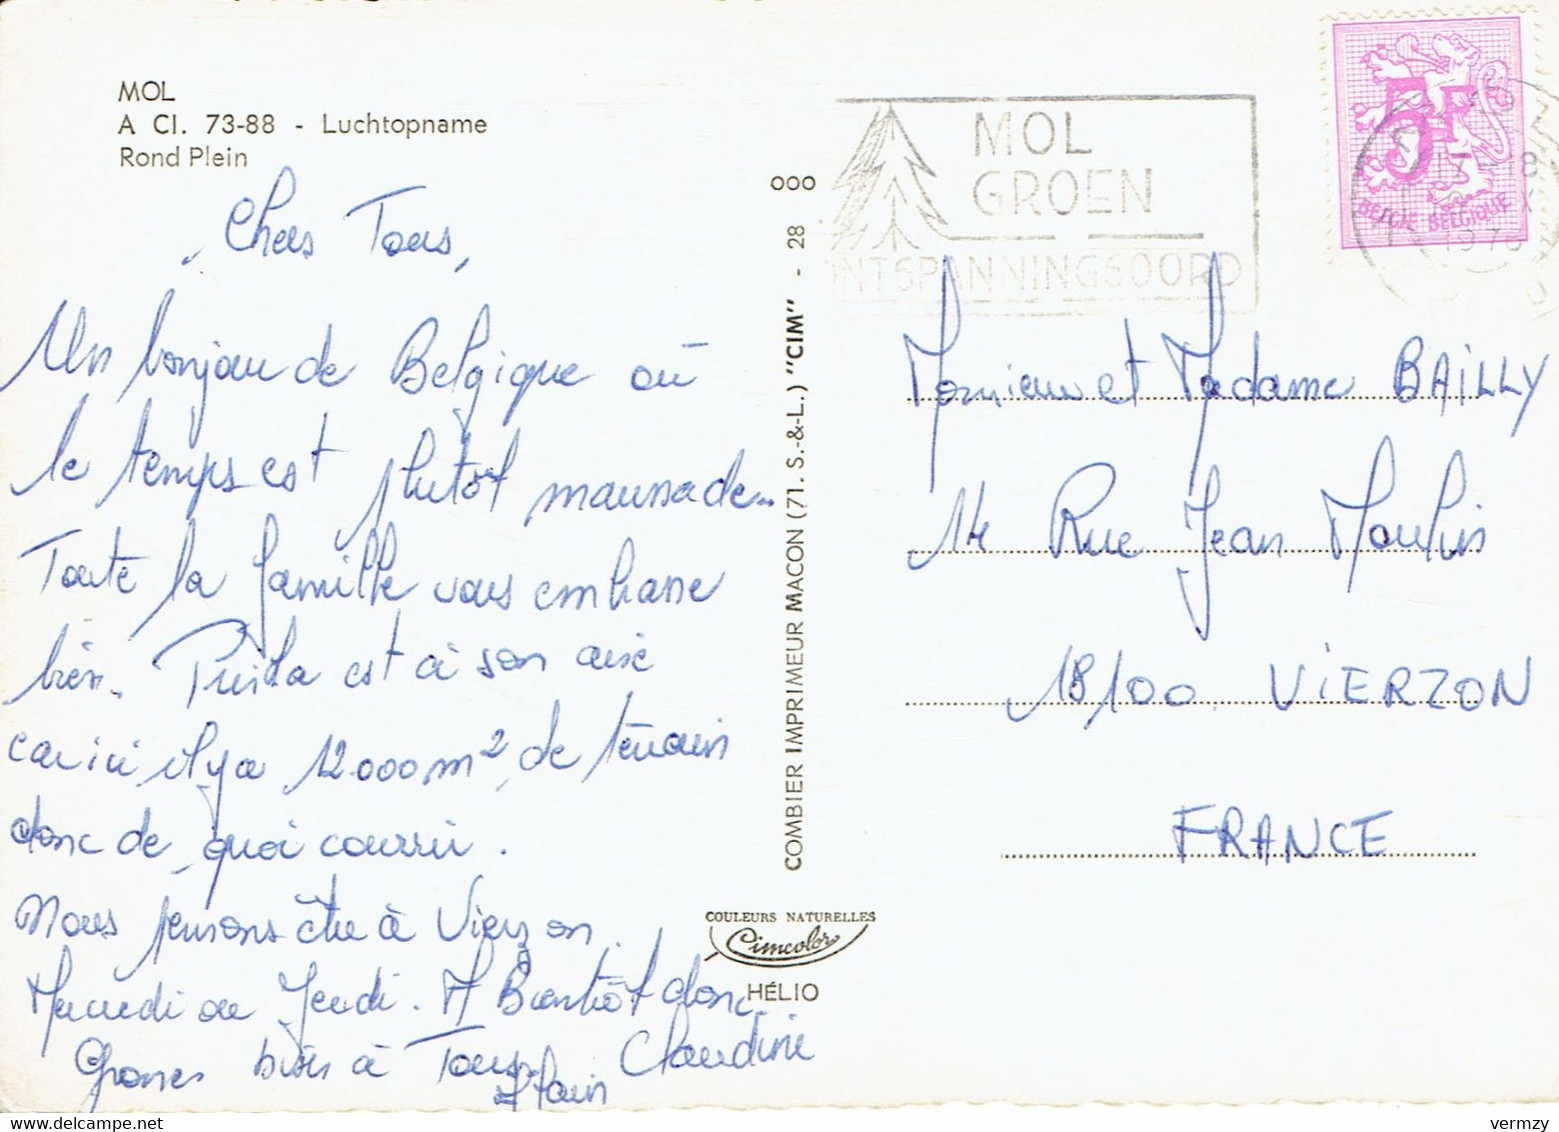 MOL
A CI. 73-88 - Luchtopname
Rond Plein
Chers Tous,
Un bonjour de Belgique où
le temps est plutôt maussade...
Toute la famille vous embrasse
bien. est à son aise
car ici il y a 12.000 m², de terrain
donc de quoi courrir.
Nous pensons être à Vierzon
Mercredi ou Jeudi. A Bientôt donc
Grosses bises à Tous Claudine
Alain
COMBIER IMPRIMEUR MACON (71. S.-&-L.) "CIM" - 28 000
COULEURS NATURELLES
Cimcolor
HÉLIO
MOL
GROEN
ONTSPANNINGSOORD
5F
BELGIE BELGIQUE
Monsieur et Madame BAiLLY
14 Rue Jean Moulin
18100 ViERZON
FRANCE
vermzy